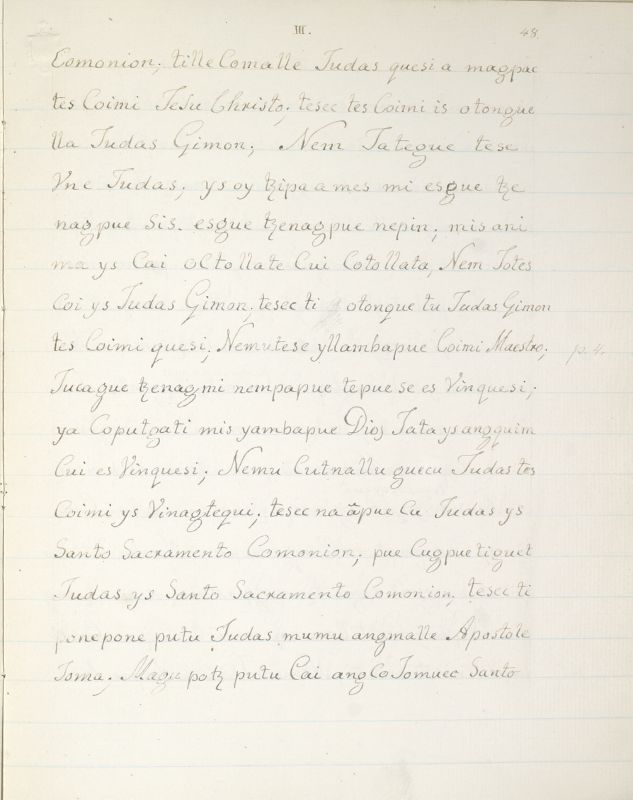 III. 48.
Comonion; tille Comalle Judas quesi a magpac
tes Coimi Jesu Christo; tesec tes Coimi is otongue
lla Judas Gimon; Nem Tategue tese
Vne Judas; ys oy tzipa a mes mi esgue tze
nagpue Sis. esgue tzenagpue nepin; mis ani
ma ys Cai Octollate Cui Cotollata, Nem Totes
Coi ys Judas Gimon; tesec ti otongue tu Judas Gimon
tes Coimi quesi, Nemutese yllambapue Coimi Maestro; p. 4.
Jucague tzenagmi nempapue tepue se es Vinquesi;
ya Coputgati mis yambapue Dios Tata ys angquim
Cui es Vinquesi; Nemu Cutnallu guecu Judas tes
Coimi ys Vinagtequi; tesec na ãpue Cu Judas ys
Santo Sacramento Comonion; pue Cugpue tiguet
Judas ys Santo Sacramento Comonion; tesec ti
ponepone putu Judas mumu angmalle Apostole
Toma; Magu potz putu Cai ang Co Tomuec Santo